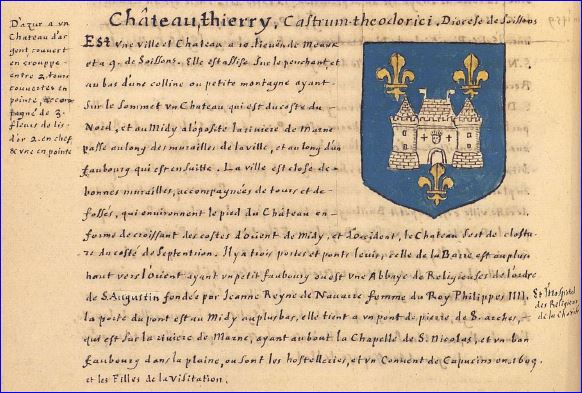 Château,thierry, Castrum-theodorici, Diocese de Soissons
D'azur a vn
Chateau d'ar
gent couvert
en crouppe
entre 2. tours
couvertes en
pointe, accom
pagné de 3.
fleurs de lis
d'or 2. en chef
& vne en pointe
Est vne ville et Chateau a 10. lieues de Meaux
et a 9. de Soissons. Elle est assise sur le penchant et
au bas d'une colline ou petite montagne ayant
sur le Sommet vn Chateau qui est du coste du
Nord, et au Midy a l'oposite la riuiere de Marne
passe au long des murailles de la ville, et au long d'un
faubourg qui est en suitte. La ville est close de
bonnes murailles, accompagnées de tours et de
fossés, qui environnent le pied du Château en
forme de croissant des costes d'orient de Midy, et d'occident, le Chateau sest de clostu
re du costé de Septentrion. Il y a trois portes et ponts leuis, celle de la Barre est au plus
haut vers l'orient ayant vn petit faubourg ou est vne Abbaye de Religieuses de l'ordre
de S. Augustin fondée par Jeanne Reyne de Nauarre femme du Roy Philippes IIII.
la porte du pont est au Midy au plus bas, elle tient a vn pont de pierre de 8. arches,
qui est sur la riuiere de Marne, ayant au bout la Chapelle de S. Nicolas, et vn bon
faubourg dans la plaine, ou sont les hostelleries, et vn Conuent de Capucins en
et les Filles de la Visitation.
& l'Hospital
des Religieux
de la Charité